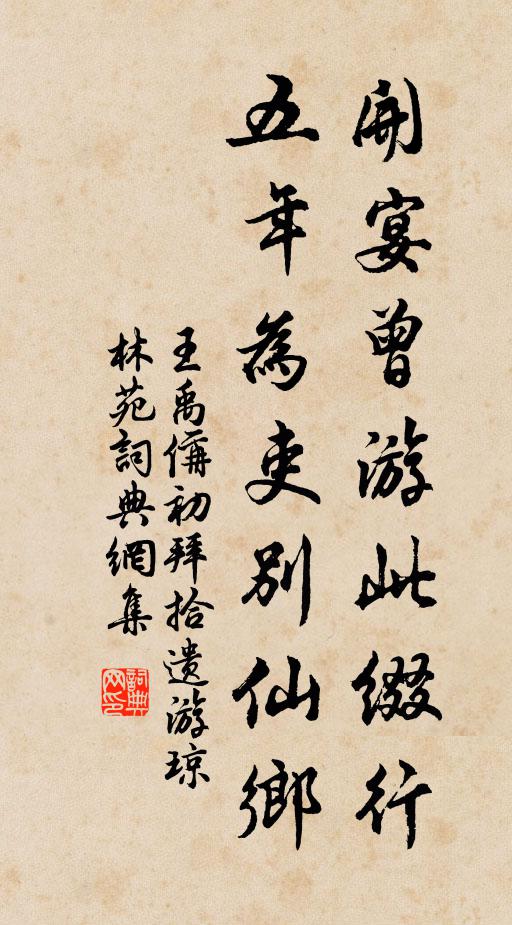 開宴曾游此綴行
五年為吏別仙鄉
王禹偁初拜拾遺游琼
林苑詞典網集
詞典
网印